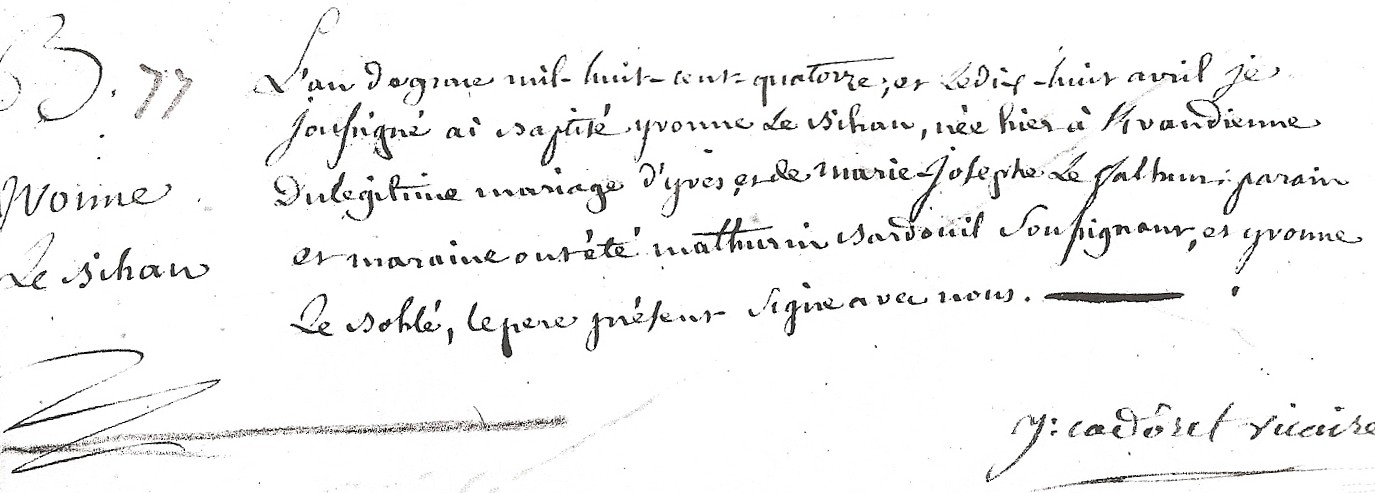 B. 77
Yvonne
Le Bihan
L'an de grace mil-huit-cent-quatorze, et Ledix-huit avril je
soussigné ai Baptisé yvonne Le Bihan, née hier à
Dulégitime mariage d'yves et de marie-josephe Le parain
et maraine ont été mathurin Bardouil soussignant, et yvonne
Le Bohlé, le pere présent signe avec nous.
y: cadôret vicaire